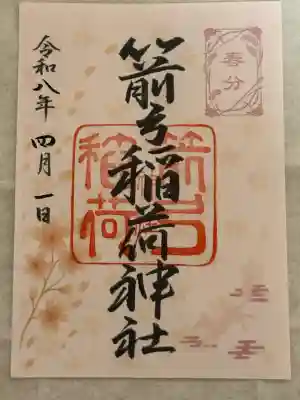 春分
箭弓稲荷神社
箭弓
稲荷
令和八年 四月一日